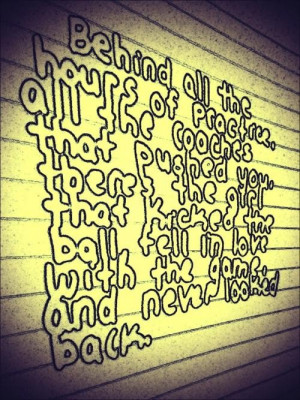 Behind all the
hours of practice,
all the coaches
that pushed you,
theres the girl
that kicked the
ball fell in love
with the game,
and never looked
back.